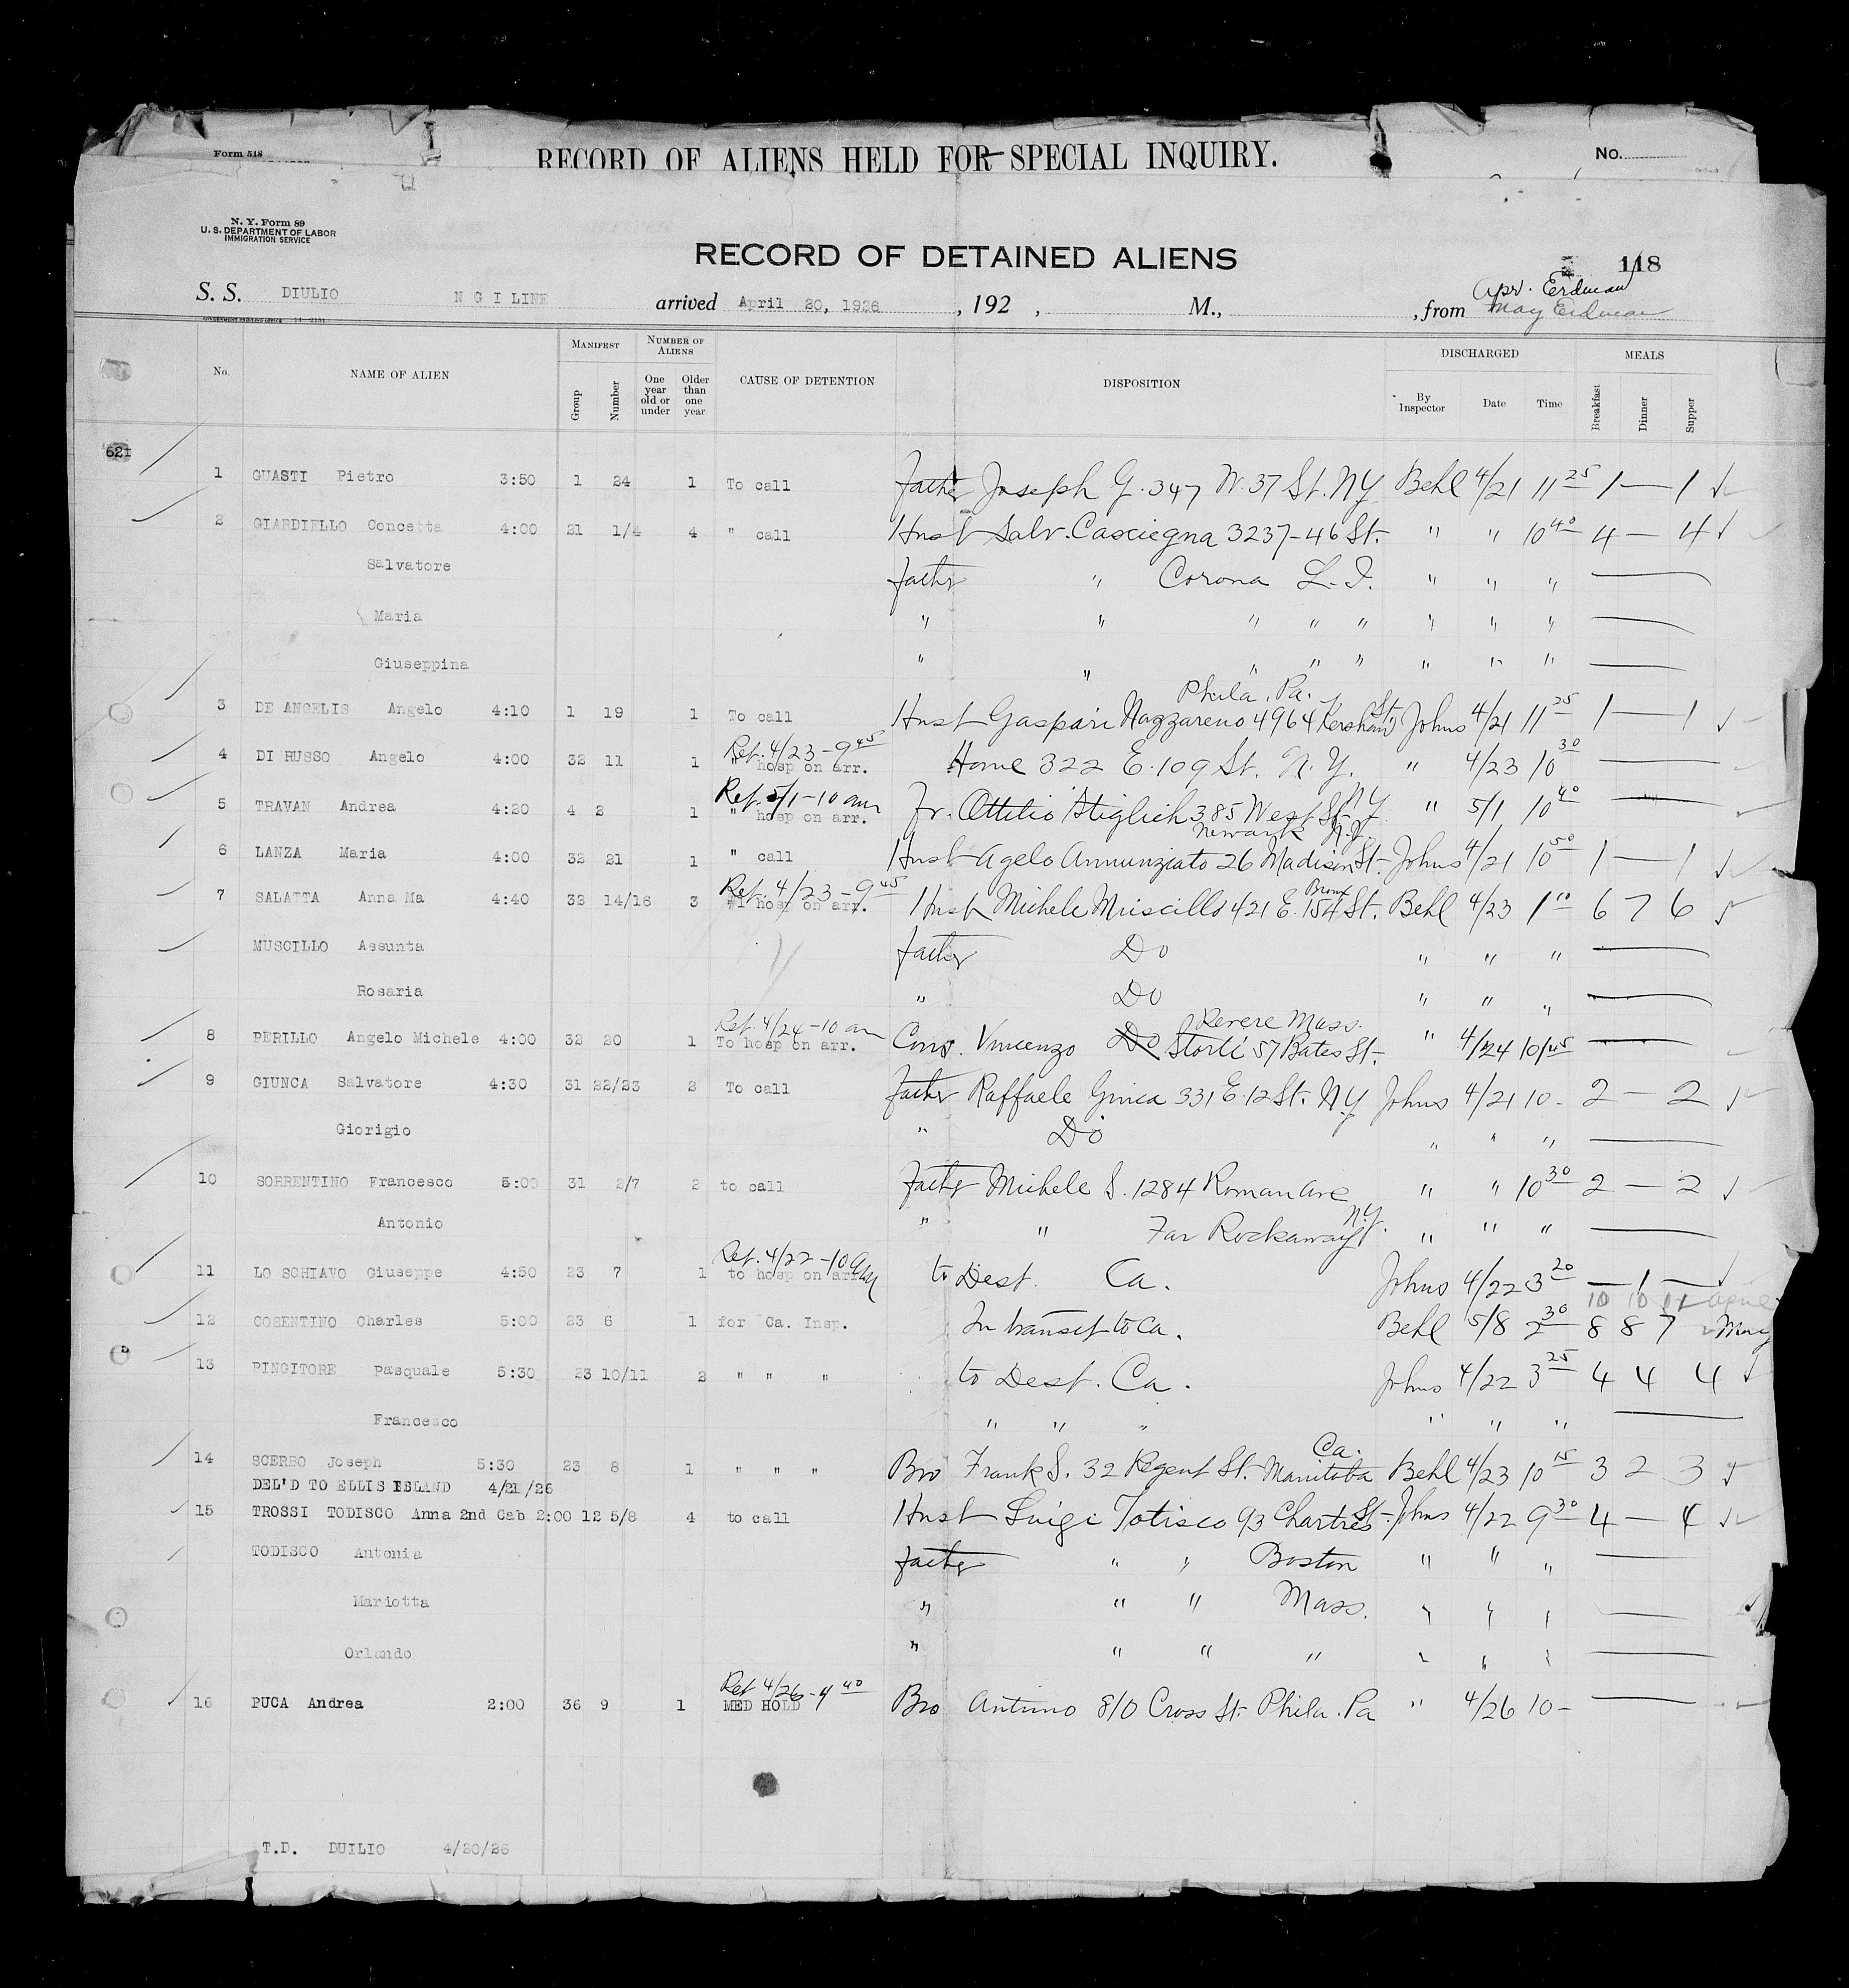 Form 518
RECORD OF ALIENS HELD FOR SPECIAL INQUIRY.
No.
N. Y. Form 89
U. S. DEPARTMENT OF LABOR
IMMIGRATION SERVICE
RECORD OF DETAINED ALIENS
118
S. S. DIULIO N G I LINE arrived April 20, 1926, 192 , M., , from Apr. Erdman
May Erdman
No. NAME OF ALIEN MANIFEST Group Number NUMBER OF ALIENS One year old or under Older than one year CAUSE OF DETENTION DISPOSITION DISCHARGED By Inspector Date Time MEALS Breakfast Dinner Supper
621
1 GUASTI Pietro 3:50 1 24 1 To call Father Joseph G. 347 W. 37 St. NY Behl 4/21 11 25 1 — 1
2 GIARDIELLO Concetta 4:00 21 1/4 4 " call Husb Salv. Casciegna 3237-46 St. " " 10 40 4 — 4
Salvatore father " Corona L. I. " " "
Maria " " " " " " " "
Giuseppina " " " " " " " "
Phila. Pa.
3 DE ANGELIS Angelo 4:10 1 19 1 To call Husb Gaspari Nazzareno 4964 Kershaw St Johns 4/21 11 25 1 — 1
Ret. 4/23 - 9 45
4 DI RUSSO Angelo 4:00 32 11 1 " hosp on arr. Home 322 E. 109 St. N. Y. " 4/23 10 30
Ret. 5/1 - 10 am
5 TRAVAN Andrea 4:20 4 2 1 " hosp on arr. Fr. Ottilio Stiglich 385 West St. NY " 5/1 10 40
Newark N.J.
6 LANZA Maria 4:00 32 21 1 " call Husb Agelo Annunziato 26 Madison St. Johns 4/21 10 50 1 — 1
Ret. 4/23 - 9 45
7 SALATTA Anna Ma 4:40 32 14/16 3 #1 hosp on arr. Husb Michele Muscillo 421 E. 154 St. Bronx Behl 4/23 1 10 6 7 6
MUSCILLO Assunta father Do " " "
Rosaria " Do " " "
Ret. 4/24 - 10 am Revere Mass.
8 PERILLO Angelo Michele 4:00 32 20 1 To hosp on arr. Cous. Vincenzo Do Storti 57 Bates St. " 4/24 10 45
9 GIUNCA Salvatore 4:30 31 22/23 2 To call father Raffaele Ginca 331 E. 12 St. N.Y Johns 4/21 10 - 2 — 2
Giorigio " Do " " "
10 SORRENTINO Francesco 5:00 31 2/7 2 to call Father Michele S. 1284 Roman Ave " " 10 30 2 — 2
Antonio " " Far Rockaway N.Y. " " "
Ret. 4/22 - 10 am
11 LO SCHIAVO Giuseppe 4:50 23 7 1 to hosp on arr to Dest. Ca. Johns 4/22 3 20 — 1 —
10 10 11 April
12 COSENTINO Charles 5:00 23 6 1 for Ca. Insp. In transit to Ca. Behl 5/8 2 30 8 8 7 May
13 PINGITORE Pasquale 5:30 23 10/11 2 " " " to Dest. Ca. Johns 4/22 3 25 4 4 4
Francesco " " " " " "
Ca.
14 SCERBO Joseph 5:30 23 8 1 " " " Bro Frank S. 32 Regent St. Manitoba Behl 4/23 10 15 3 2 3
DEL'D TO ELLIS ISLAND 4/21/26
15 TROSSI TODISCO Anna 2nd Cab 2:00 12 5/8 4 to call Husb Luigi Totisco 93 Chartres St. Johns 4/22 9 30 4 — 4
TODISCO Antonia father " " Boston " " "
Mariotta " " " Mass. " " "
Orlando " " " " " " "
Ret 4/26 - 9 40
16 PUCA Andrea 2:00 36 9 1 MED HOLD Bro Antimo 810 Cross St. Phila. Pa " 4/26 10 -
T.D. DUILIO 4/20/26